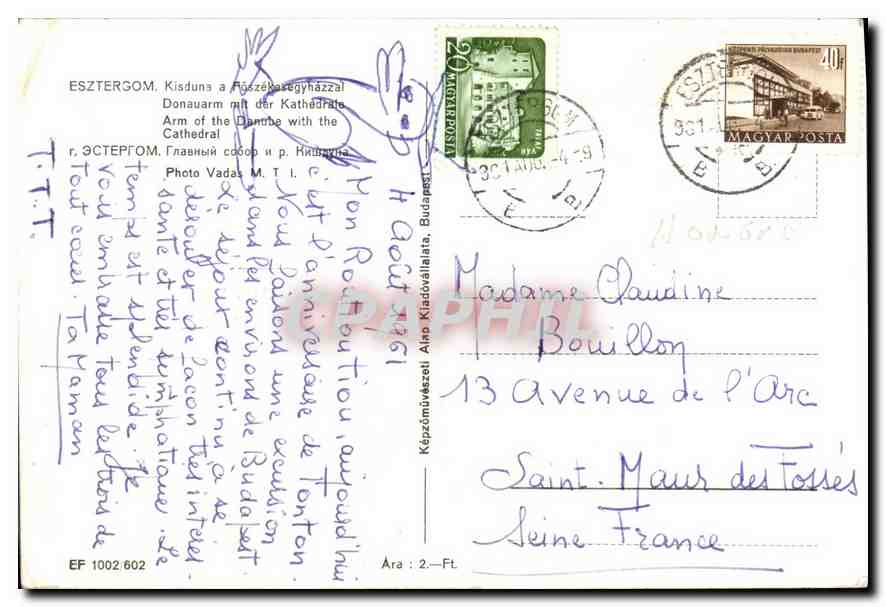 ESZTERGOM. Kisduna a Főszékesegyházzal
Donauarm mit der Kathédrale
Arm of the Danube with the
Cathedral
г. ЭСТЕРГОМ. Главный собор и р. Кишдуна
Photo Vadas M. T. I.
4 Août 1961
Mon Routioutiou, aujourd'hui
c'est l'anniversaire de Tonton.
Nous faisons une excursion
dans les environs de Budapest.
Le séjour continu à se
dérouler de façon très intéres-
sante et très sympathique. Le
temps est splendide. Je
vous embrasse tous les trois de
tout cœur. Ta Maman
T.T.T.
EF 1002/602
Ára : 2.—Ft.
Képzőművészeti Alap Kiadóvállalata, Budapest
20
MAGYAR POSTA
KÖZPONTI PÁLYAUDVAR BUDAPEST
40f
MAGYAR POSTA
Madame Claudine
Bouillon
13 Avenue de l'Arc
Saint-Maur des Fossés
Seine France
CPAPHIL